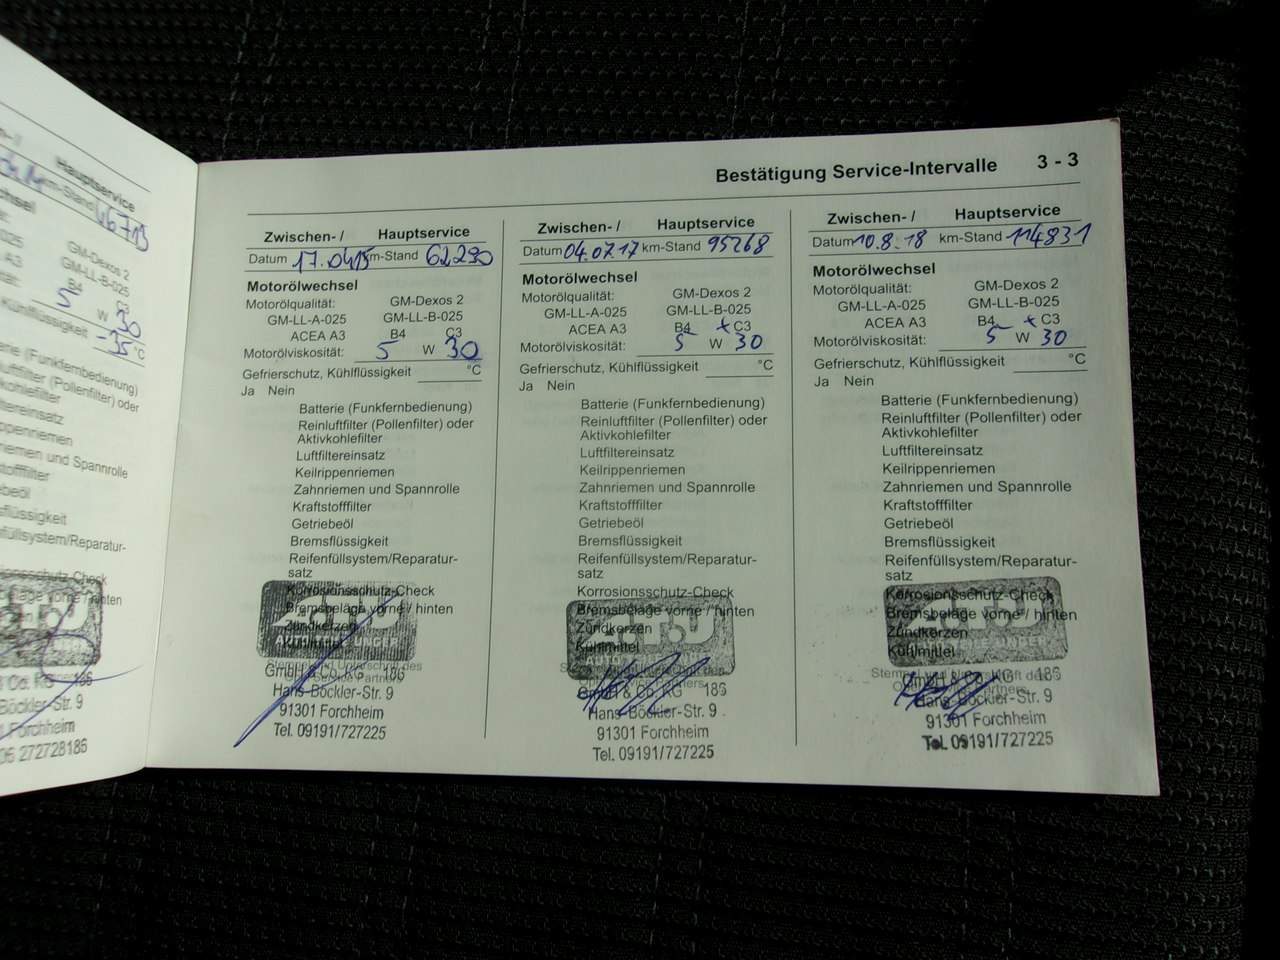 Hauptservice
km-Stand 46713
GM-Dexos 2
GM-LL-B-025
A3 B4 C3
5 W 30
Kühlflüssigkeit -35 °C
(Funkfernbedienung)
(Pollenfilter) oder
Bestätigung Service-Intervalle 3 - 3
Zwischen- / Hauptservice
Datum 17.0415 km-Stand 62290
Motorölwechsel
Motorölqualität: GM-Dexos 2
GM-LL-A-025 GM-LL-B-025
ACEA A3 B4 C3
Motorölviskosität: 5 W 30
Gefrierschutz, Kühlflüssigkeit °C
Ja Nein
Batterie (Funkfernbedienung)
Reinluftfilter (Pollenfilter) oder
Aktivkohlefilter
Luftfiltereinsatz
Keilrippenriemen
Zahnriemen und Spannrolle
Kraftstofffilter
Getriebeöl
Bremsflüssigkeit
Reifenfüllsystem/Reparatur-
satz
Korrosionsschutz-Check
Bremsbeläge vorne / hinten
Zündkerzen
Kühlmittel
GmbH & Co. KG 186
Hans-Böckler-Str. 9
91301 Forchheim
Tel. 09191/727225
Zwischen- / Hauptservice
Datum 04.07.17 km-Stand 95268
Motorölwechsel
Motorölqualität: GM-Dexos 2
GM-LL-A-025 GM-LL-B-025
ACEA A3 B4 x C3
Motorölviskosität: 5 W 30
Gefrierschutz, Kühlflüssigkeit °C
Ja Nein
Batterie (Funkfernbedienung)
Reinluftfilter (Pollenfilter) oder
Aktivkohlefilter
Luftfiltereinsatz
Keilrippenriemen
Zahnriemen und Spannrolle
Kraftstofffilter
Getriebeöl
Bremsflüssigkeit
Reifenfüllsystem/Reparatur-
satz
Korrosionsschutz-Check
Bremsbeläge vorne / hinten
Zündkerzen
GmbH & Co. KG 186
Hans-Böckler-Str. 9
91301 Forchheim
Tel. 09191/727225
Zwischen- / Hauptservice
Datum 10.8.18 km-Stand 114831
Motorölwechsel
Motorölqualität: GM-Dexos 2
GM-LL-A-025 GM-LL-B-025
ACEA A3 B4 x C3
Motorölviskosität: 5 W 30
Gefrierschutz, Kühlflüssigkeit °C
Ja Nein
Batterie (Funkfernbedienung)
Reinluftfilter (Pollenfilter) oder
Aktivkohlefilter
Luftfiltereinsatz
Keilrippenriemen
Zahnriemen und Spannrolle
Kraftstofffilter
Getriebeöl
Bremsflüssigkeit
Reifenfüllsystem/Reparatur-
satz
Korrosionsschutz-Check
Bremsbeläge vorne / hinten
Zündkerzen
Kühlmittel
GmbH & Co. KG 186
Hans-Böckler-Str. 9
91301 Forchheim
Tel. 09191/727225